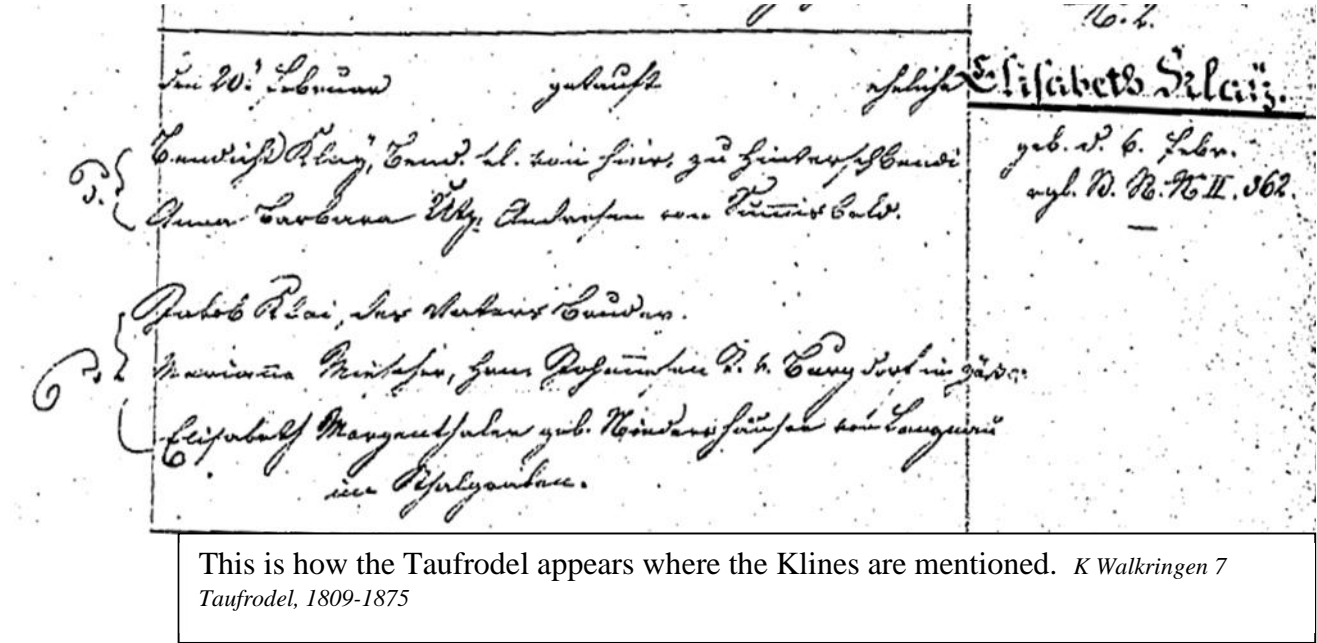 N. 2.
den 20.t Februar getauft eheliche Elisabeth Klaÿ.
Bendicht Klaÿ, Bend. sl. von hier, zu
geb. d. 6. Febr.
Anna Barbara Andresen von Sumiswald.
N. II. 362.
Jakob Klai, des Vaters Bruder.
Marianna Mietscher, Johannesen v. Burgdorf im
Elisabeth Morgenthaler geb. Niederhäuser von Langnau
im Thalgraben.
This is how the Taufrodel appears where the Klines are mentioned. K Walkringen 7
Taufrodel, 1809-1875